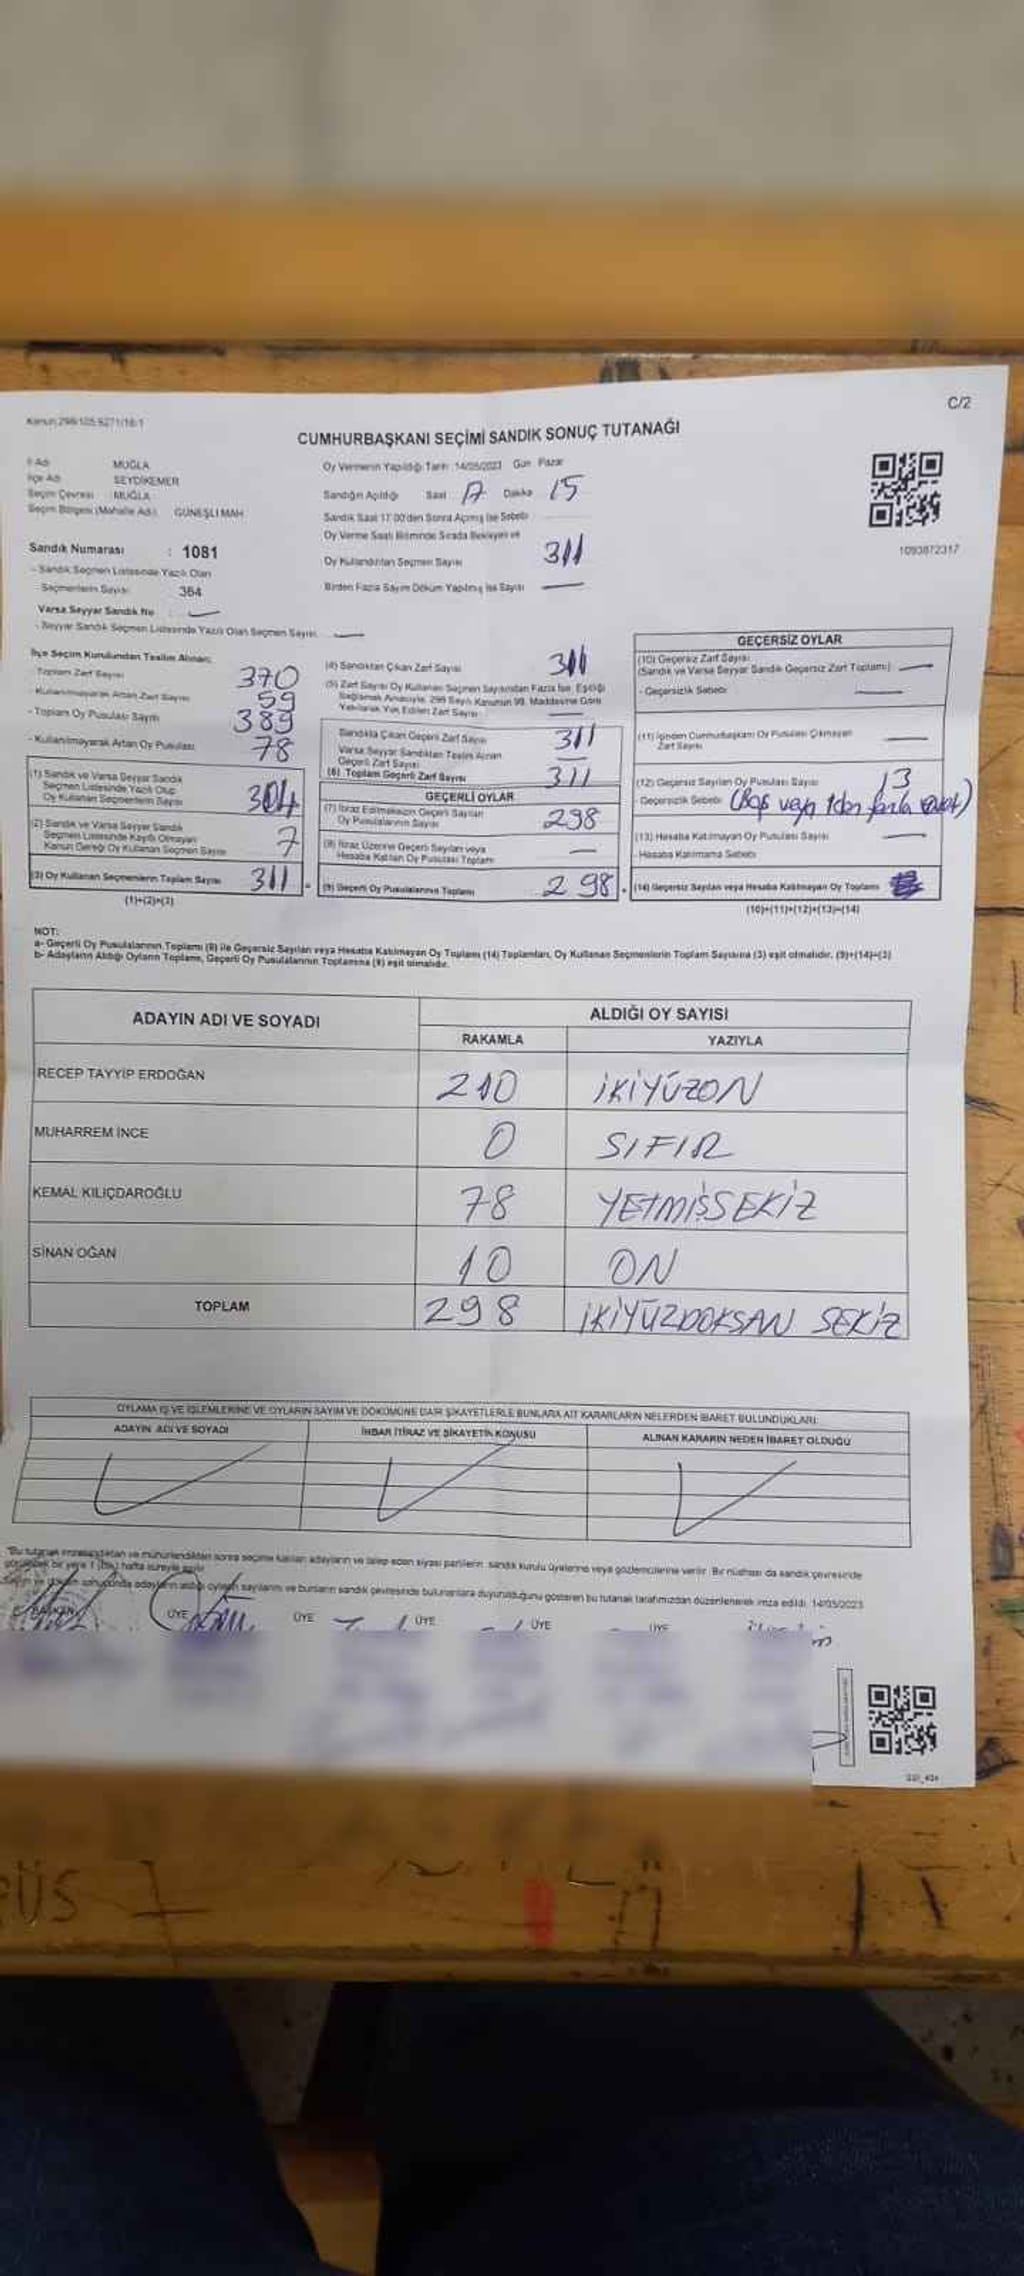 C/2
Kanun:298/105.6271/16:1
CUMHURBAŞKANI SEÇİMİ SANDIK SONUÇ TUTANAĞI
İl Adı MUĞLA
İlçe Adı SEYDİKEMER
Seçim Çevresi : MUĞLA
Seçim Bölgesi (Mahalle Adı) GÜNEŞLİ MAH
Sandık Numarası : 1081
- Sandık Seçmen Listesinde Yazılı Olan
Seçmenlerin Sayısı 364
Varsa Seyyar Sandık No
- Seyyar Sandık Seçmen Listesinde Yazılı Olan Seçmen Sayısı
Oy Vermenin Yapıldığı Tarih: 14/05/2023 Gün Pazar
Sandığın Açıldığı Saat 17 Dakika 15
Sandık Saat 17:00'den Sonra Açılmış İse Sebebi
Oy Verme Saati Bitiminde Sırada Bekleyen ve
Oy Kullandırılan Seçmen Sayısı 311
Birden Fazla Sayım Döküm Yapılmış İse Sayısı
1093872317
İlçe Seçim Kurulundan Teslim Alınan;
Toplam Zarf Sayısı 370
- Kullanılmayarak Artan Zarf Sayısı 59
- Toplam Oy Pusulası Sayısı 389
- Kullanılmayarak Artan Oy Pusulası 78
(1) Sandık ve Varsa Seyyar Sandık
Seçmen Listesinde Yazılı Olup
Oy Kullanan Seçmenlerin Sayısı 304
(2) Sandık ve Varsa Seyyar Sandık
Seçmen Listesinde Kayıtlı Olmayan
Kanun Gereği Oy Kullanan Seçmen Sayısı 7
(3) Oy Kullanan Seçmenlerin Toplam Sayısı 311 =
(1)+(2)=(3)
(4) Sandıktan Çıkan Zarf Sayısı 311
(5) Zarf Sayısı Oy Kullanan Seçmen Sayısından Fazla İse, Eşitliği
Sağlamak Amacıyla, 298 Sayılı Kanunun 98. Maddesine Göre
Yakılarak Yok Edilen Zarf Sayısı
Sandıkta Çıkan Geçerli Zarf Sayısı 311
Varsa Seyyar Sandıktan Teslim Alınan
Geçerli Zarf Sayısı
(6) Toplam Geçerli Zarf Sayısı 311
GEÇERLİ OYLAR
(7) İtiraz Edilmeksizin Geçerli Sayılan
Oy Pusulalarının Sayısı 298
(8) İtiraz Üzerine Geçerli Sayılan veya
Hesaba Katılan Oy Pusulası Toplamı
(9) Geçerli Oy Pusulalarının Toplamı 298 +
GEÇERSİZ OYLAR
(10) Geçersiz Zarf Sayısı
(Sandık ve Varsa Seyyar Sandık Geçersiz Zarf Toplamı)
- Geçersizlik Sebebi
(11) İçinden Cumhurbaşkanı Oy Pusulası Çıkmayan
Zarf Sayısı
(12) Geçersiz Sayılan Oy Pusulası Sayısı 13
- Geçersizlik Sebebi (Boş veya 1den fazla evet)
(13) Hesaba Katılmayan Oy Pusulası Sayısı
- Hesaba Katılmama Sebebi
(14) Geçersiz Sayılan veya Hesaba Katılmayan Oy Toplamı
(10)+(11)+(12)+(13)=(14)
NOT:
a- Geçerli Oy Pusulalarının Toplamı (9) ile Geçersiz Sayılan veya Hesaba Katılmayan Oy Toplamı (14) Toplamları, Oy Kullanan Seçmenlerin Toplam Sayısına (3) eşit olmalıdır. (9)+(14)=(3)
b- Adayların Aldığı Oyların Toplamı, Geçerli Oy Pusulalarının Toplamına (9) eşit olmalıdır.
ADAYIN ADI VE SOYADI ALDIĞI OY SAYISI
RAKAMLA YAZIYLA
RECEP TAYYİP ERDOĞAN 210 İKİYÜZON
MUHARREM İNCE 0 SIFIR
KEMAL KILIÇDAROĞLU 78 YETMİŞSEKİZ
SİNAN OĞAN 10 ON
TOPLAM 298 İKİYÜZDOKSAN SEKİZ
OYLAMA İŞ VE İŞLEMLERİNE VE OYLARIN SAYIM VE DÖKÜMÜNE DAİR ŞİKAYETLERLE BUNLARA AİT KARARLARIN NELERDEN İBARET BULUNDUKLARI
ADAYIN ADI VE SOYADI İHBAR İTİRAZ VE ŞİKAYETİN KONUSU ALINAN KARARIN NEDEN İBARET OLDUĞU
*Bu tutanak imzalandıktan ve mühürlendikten sonra seçime katılan adayların ve talep eden siyasi partilerin sandık kurulu üyelerine veya gözlemcilerine verilir. Bir nüshası da sandık çevresinde
görülecek bir yere 1 (bir) hafta süreyle asılır.
Sayım ve döküm sonucunda adayların aldığı oyların sayılarını ve bunların sandık çevresinde bulunanlara duyurulduğunu gösteren bu tutanak tarafımızdan düzenlenerek imza edildi. 14/05/2023
BAŞKAN ÜYE ÜYE ÜYE ÜYE ÜYE
ÜS